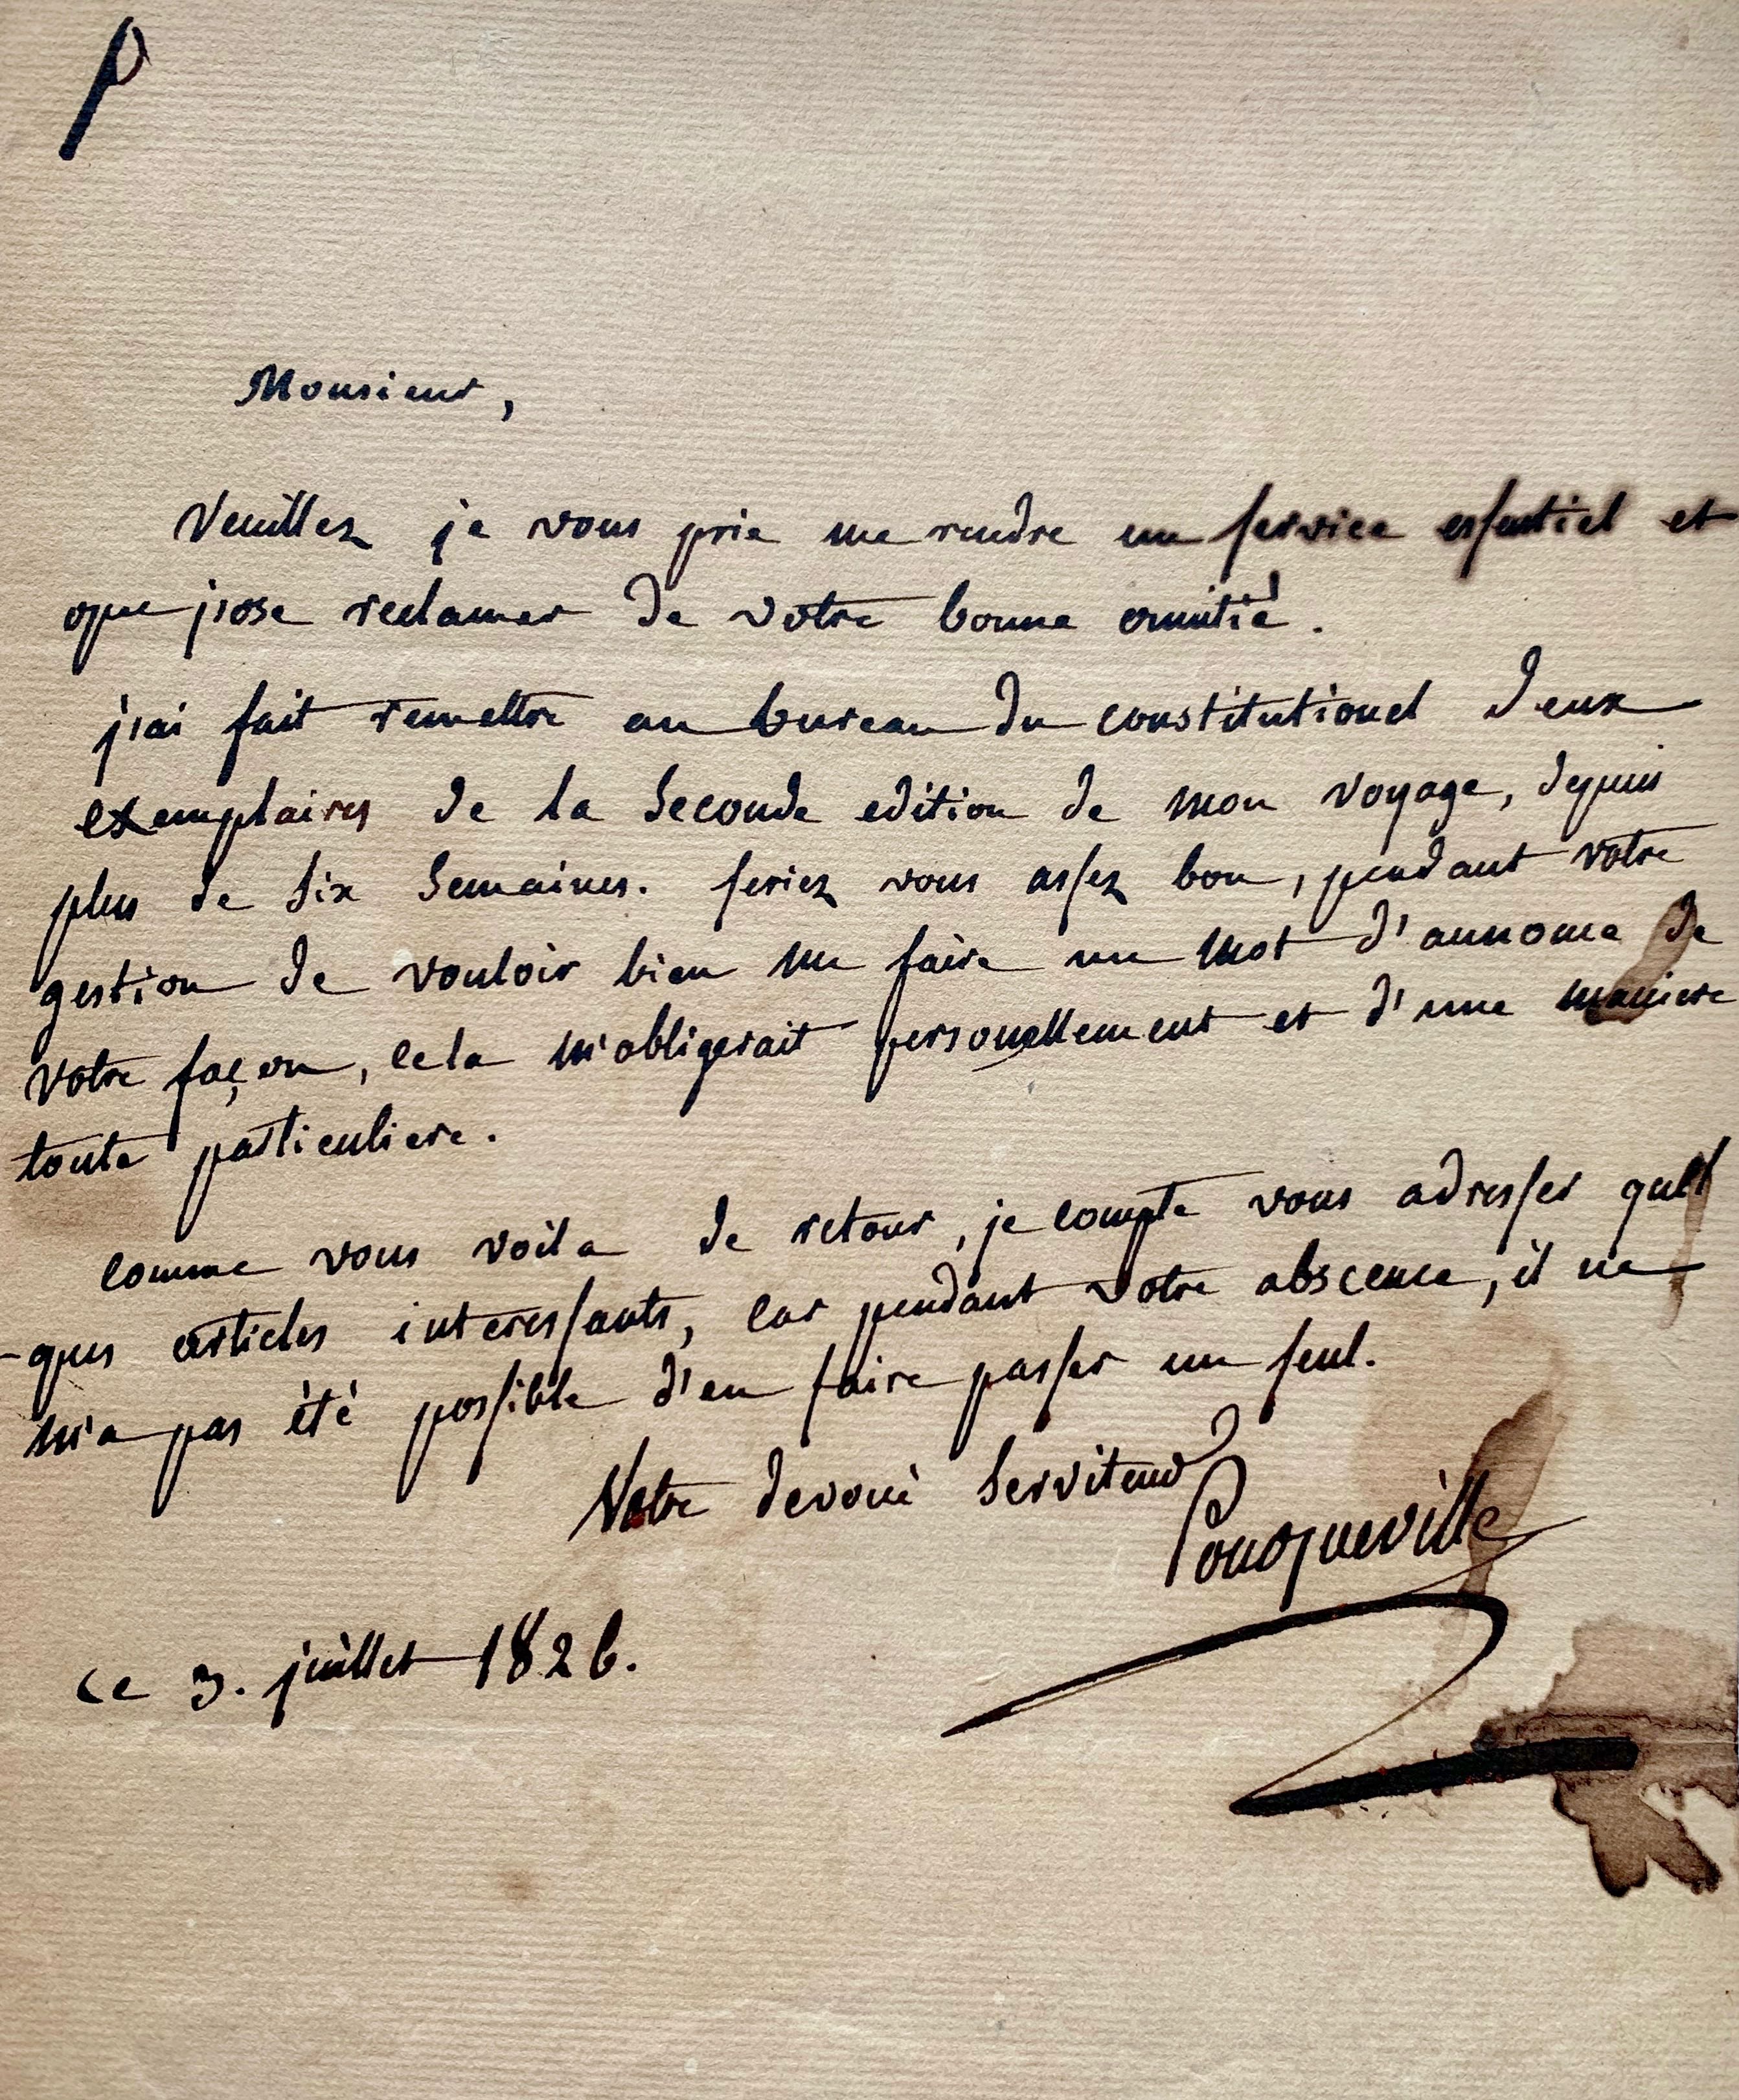 P
Monsieur,
Veuillez je vous prie me rendre un service essentiel et
que j'ose reclamer de votre bonne amitié.
j'ai fait remettre au bureau du constitutionel deux
exemplaires de la seconde edition de mon voyage, depuis
plus de six semaines. seriez vous assez bon, pendant votre
gestion de vouloir bien me faire un mot d'annonce de
votre façon, cela m'obligerait personellement et d'une maniere
toute particuliere.
comme vous voila de retour, je compte vous adresser quel
-ques articles interessants, car pendant votre abscence, il ne
m'a pas été possible d'en faire passer un seul.
Votre devoué serviteur
Pouqueville
ce 3. juillet 1826.